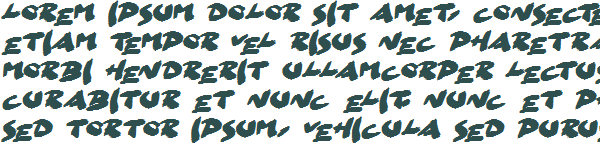 LOREM IPSUM DOLOR SIT AMET, CONSECTE
ETIAM TEMPOR VEL RISUS NEC PHARETRA
MORBI HENDRERIT ULLAMCORPER LECTUS
CURABITUR ET NUNC ELIT. NUNC ET P
SED TORTOR IPSUM, VEHICULA SED PURUS